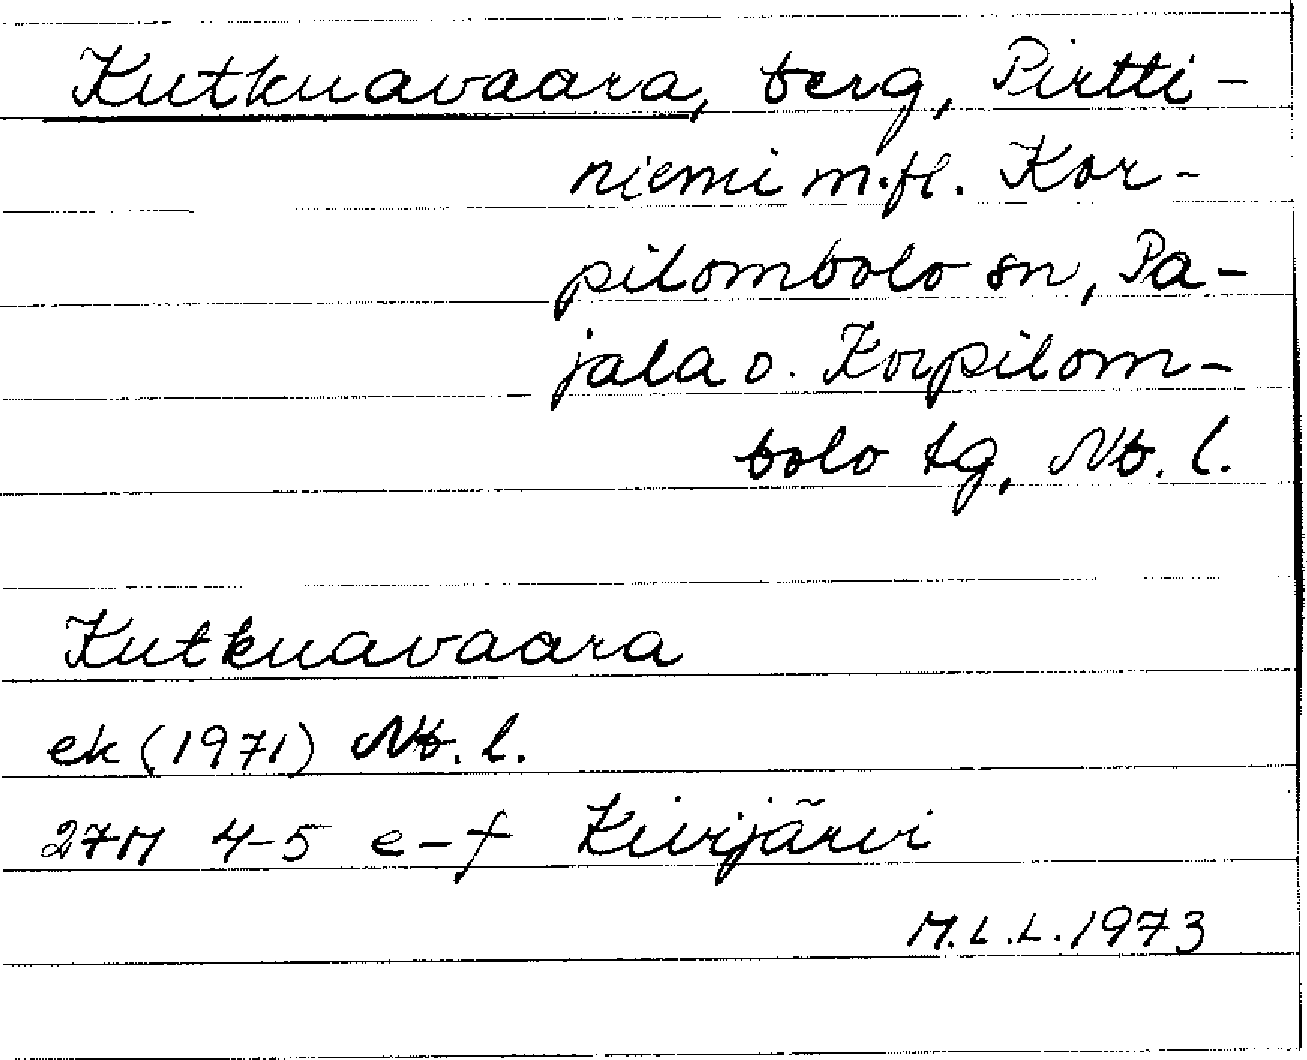 Kutkuavaara, berg, Pirtti-
niemi m.fl. Kor-
pilombolo sn, Pa-
jala o. Korpilom-
bolo tg, Nb. l.
Kutkuavaara
ek (1971) Nb. l.
27M 4-5 e-f Kivijärvi
M.L.L. 1973